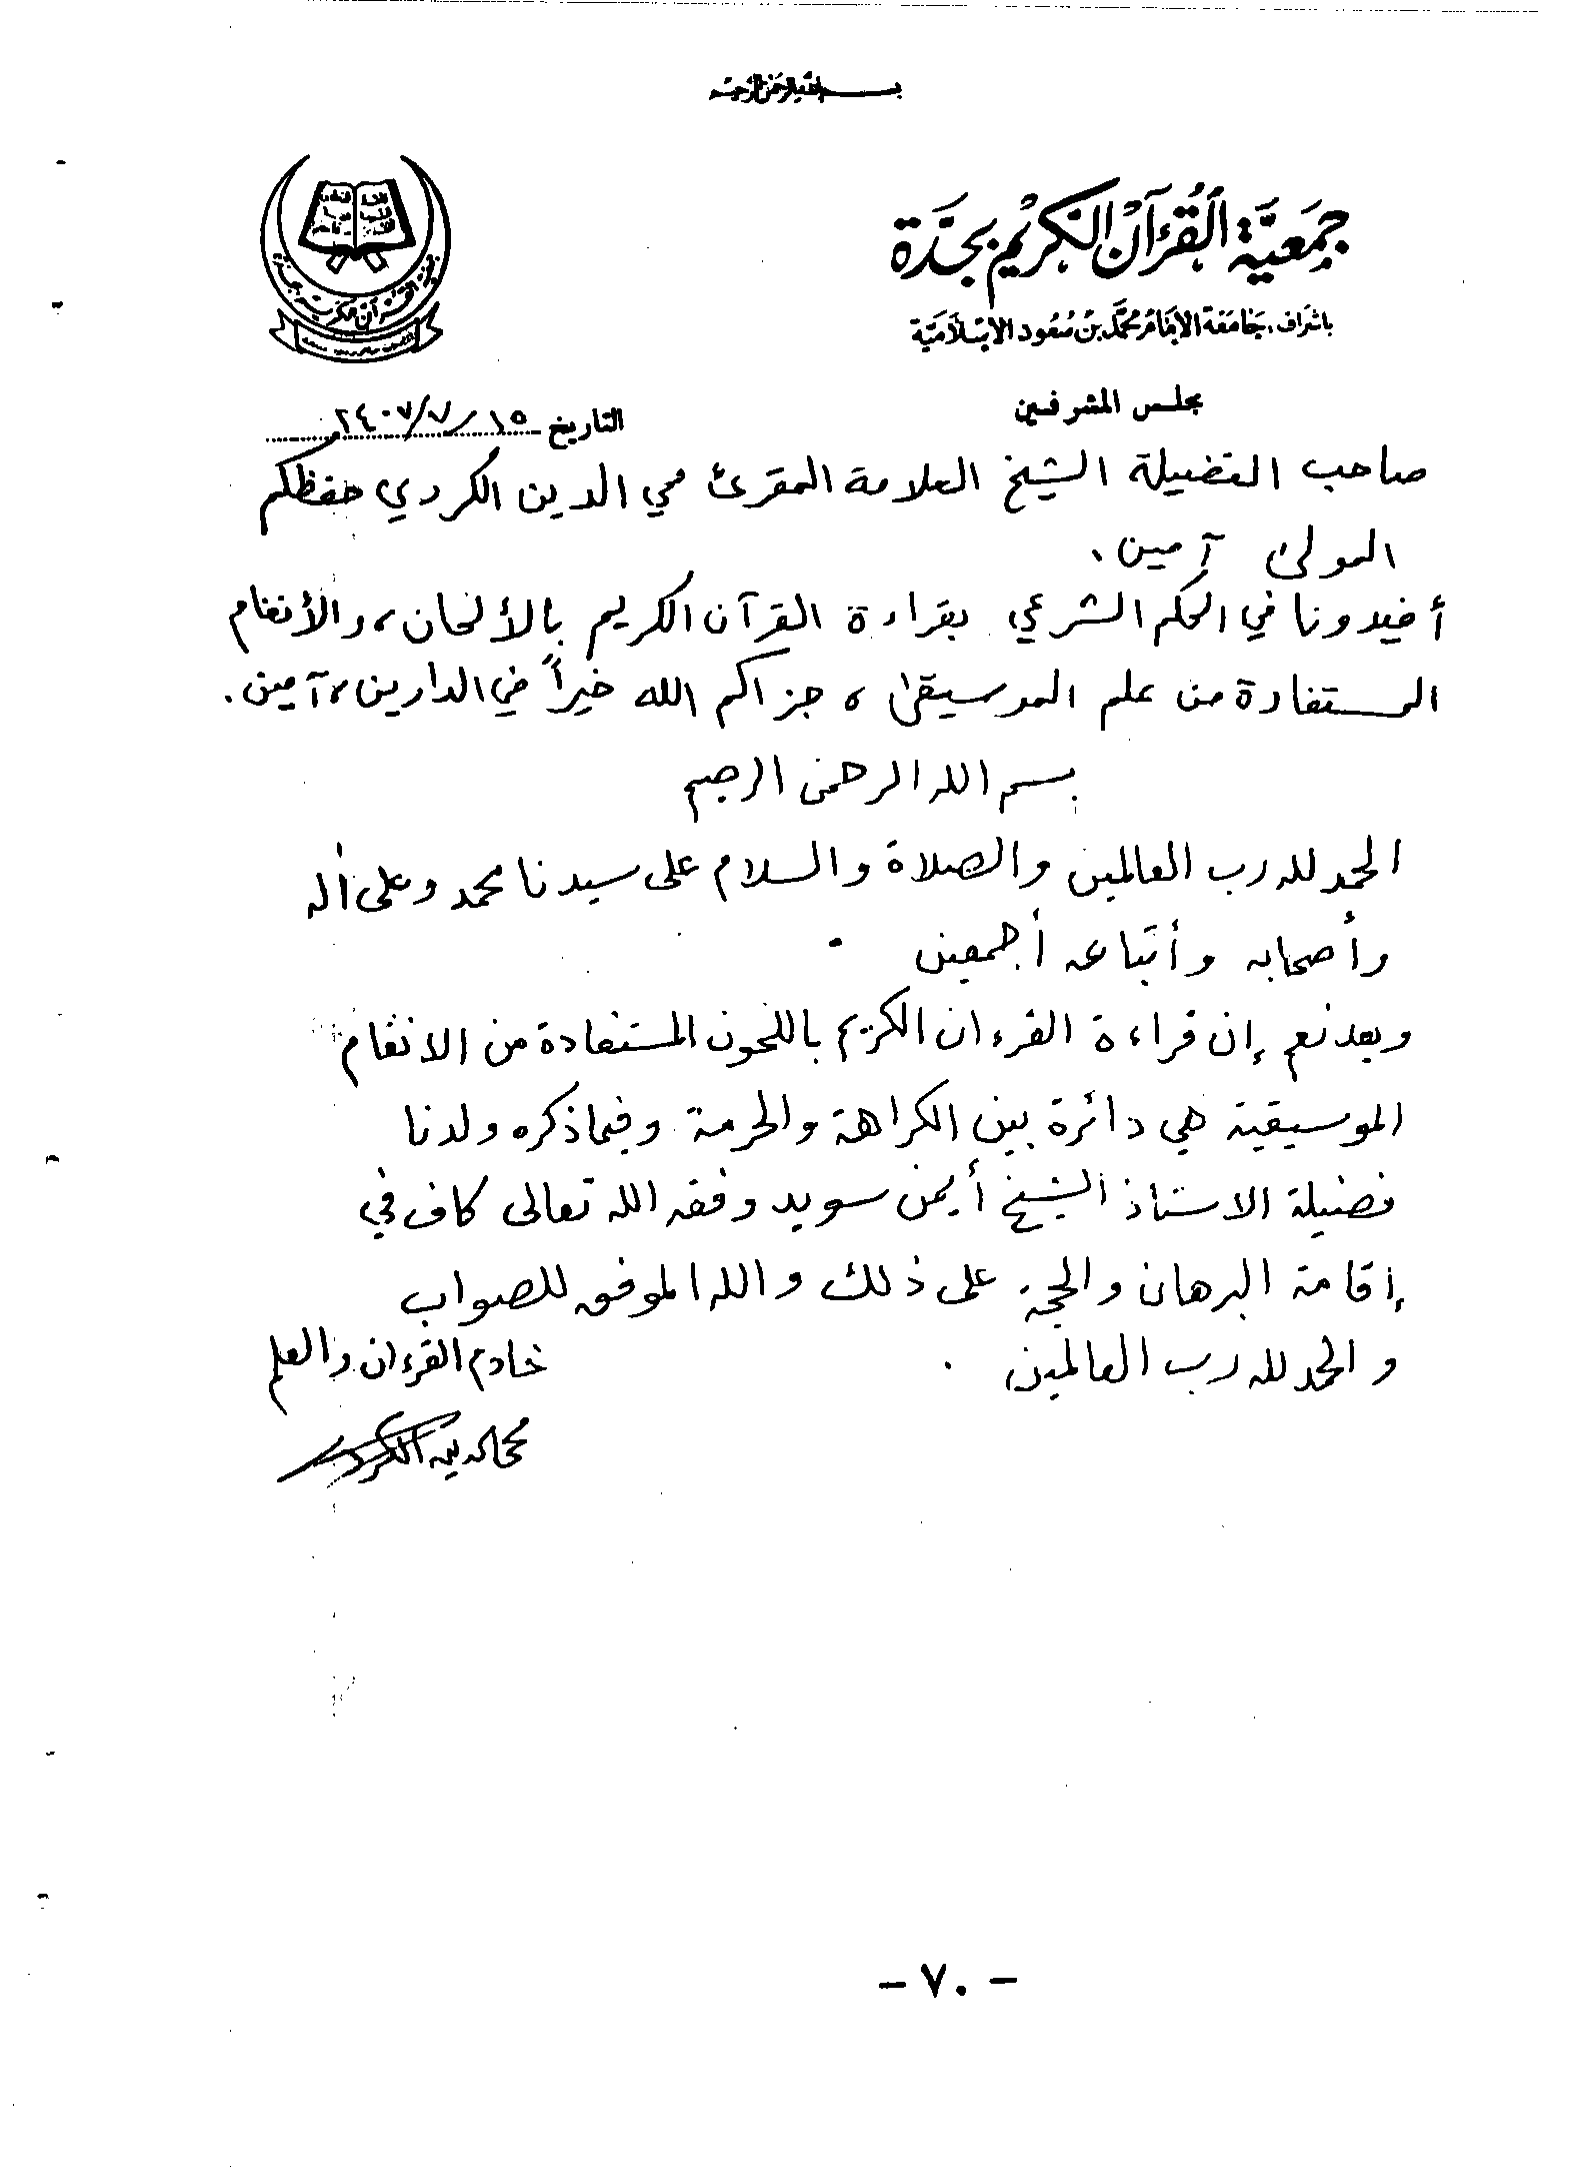 بسم الله الرحمن الرحيم
جمعية القرآن الكريم بجدة
باشراف جامعة الإمام محمد بن سعود الإسلامية
مجلس المشرفين
التاريخ ١٥/٧/١٤٠٧
صاحب الفضيلة الشيخ العلامة المقرئ محي الدين الكردي حفظكم
المولى آمين.
أفيدونا في الحكم الشرعي بقراءة القرآن الكريم بالألحان، والأنغام
المستفادة من علم الموسيقى، جزاكم الله خيراً في الدارين، آمين.
بسم الله الرحمن الرحيم
الحمد لله رب العالمين والصلاة والسلام على سيدنا محمد وعلى أله
وأصحابه وأتباعه أجمعين
وبعد نعم إن قراءة القرءان الكريم باللحون المستفادة من الانغام
الموسيقية هي دائرة بين الكراهة والحرمة وفيما ذكره ولدنا
فضيلة الاستاذ الشيخ أيمن سويد وفقه الله تعالى كاف في
إقامة البرهان والحجة على ذلك والله الموفق للصواب
والحمد لله رب العالمين.
خادم القرءان والعلم
محي الدين الكردي
- ٧٠ -